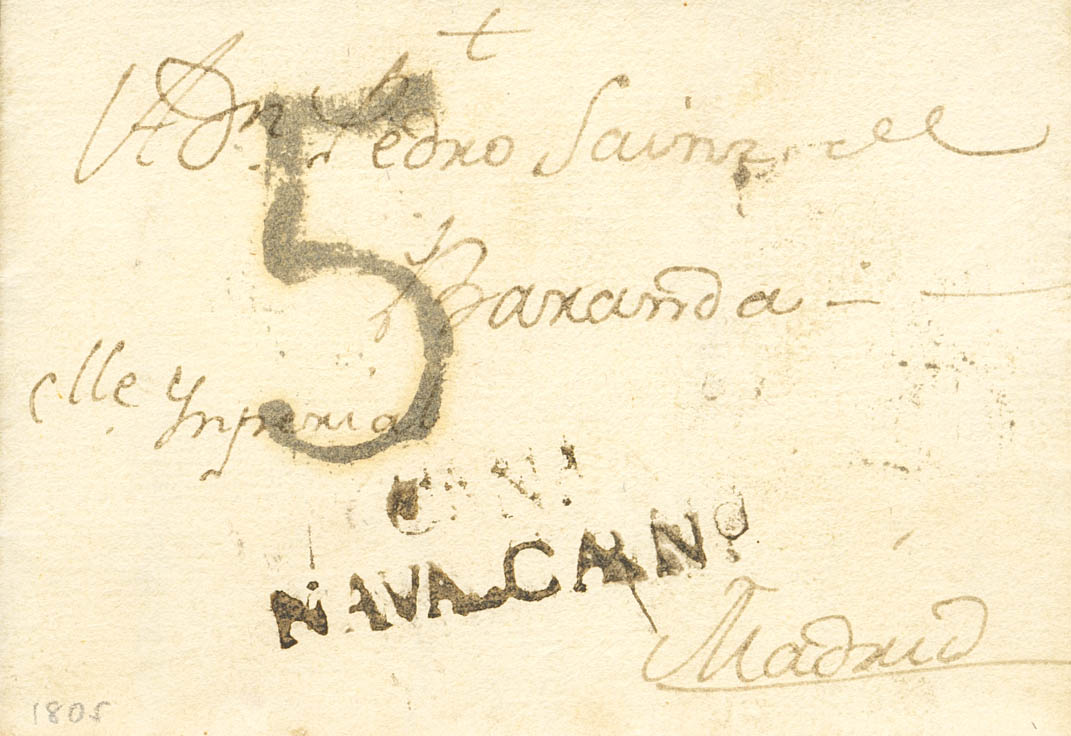 A Dn Pedro Sainz de
Baranda
5
Clle Ynperial
C.N.
NAVALCARNo
Madrid
1805